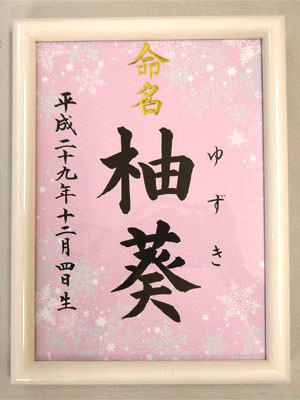 命名
ゆずき
柚葵
平成二十九年十二月四日生